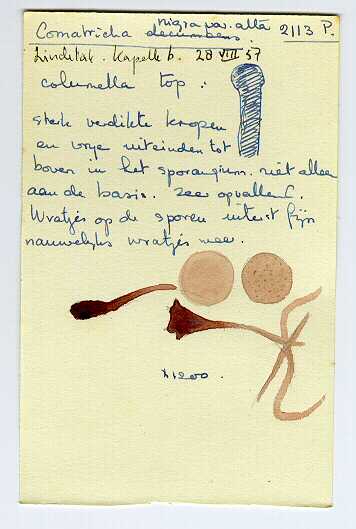 nigra var. alta
Comatricha decumbens. 2113 P.
Lindetak. Kapelle b. 28 VIII 57
columella top :
sterk verdikte knopen
en vrije uiteinden tot
boven in het sporangium. niet alleen
aan de basis. zeer opvallend.
Wratjes op de sporen uiterst fijn
nauwelijks wratjes meer.
x 1200.